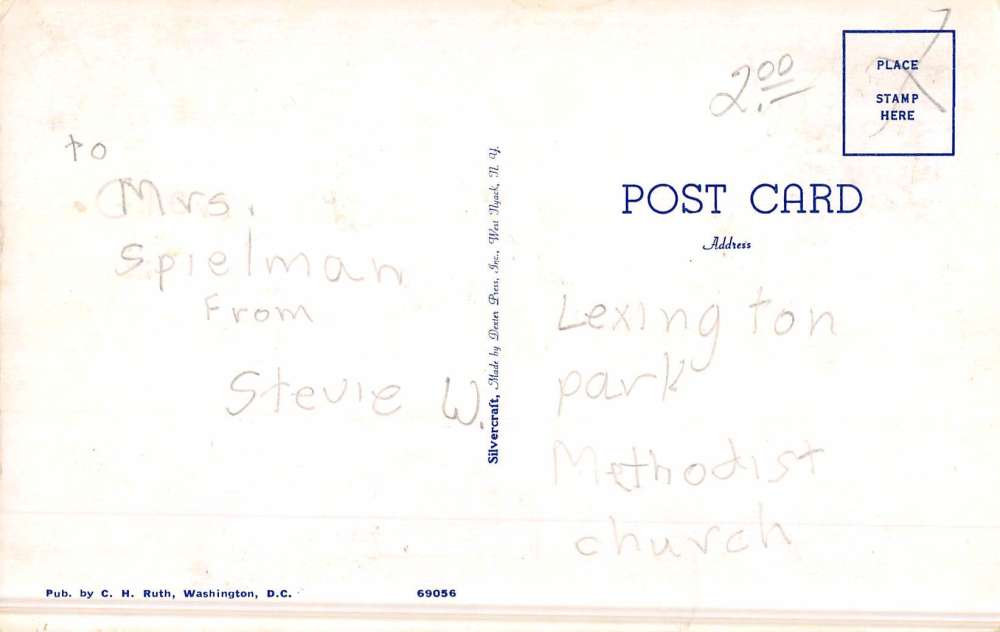 to
Mrs.
Spielman
From
Stevie W.
Silvercraft, Made by Dexter Press, Inc., West Nyack, N. Y.
2.00
PLACE
STAMP
HERE
POST CARD
Address
Lexington
park
Methodist
church
Pub. by C. H. Ruth, Washington, D.C.
69056